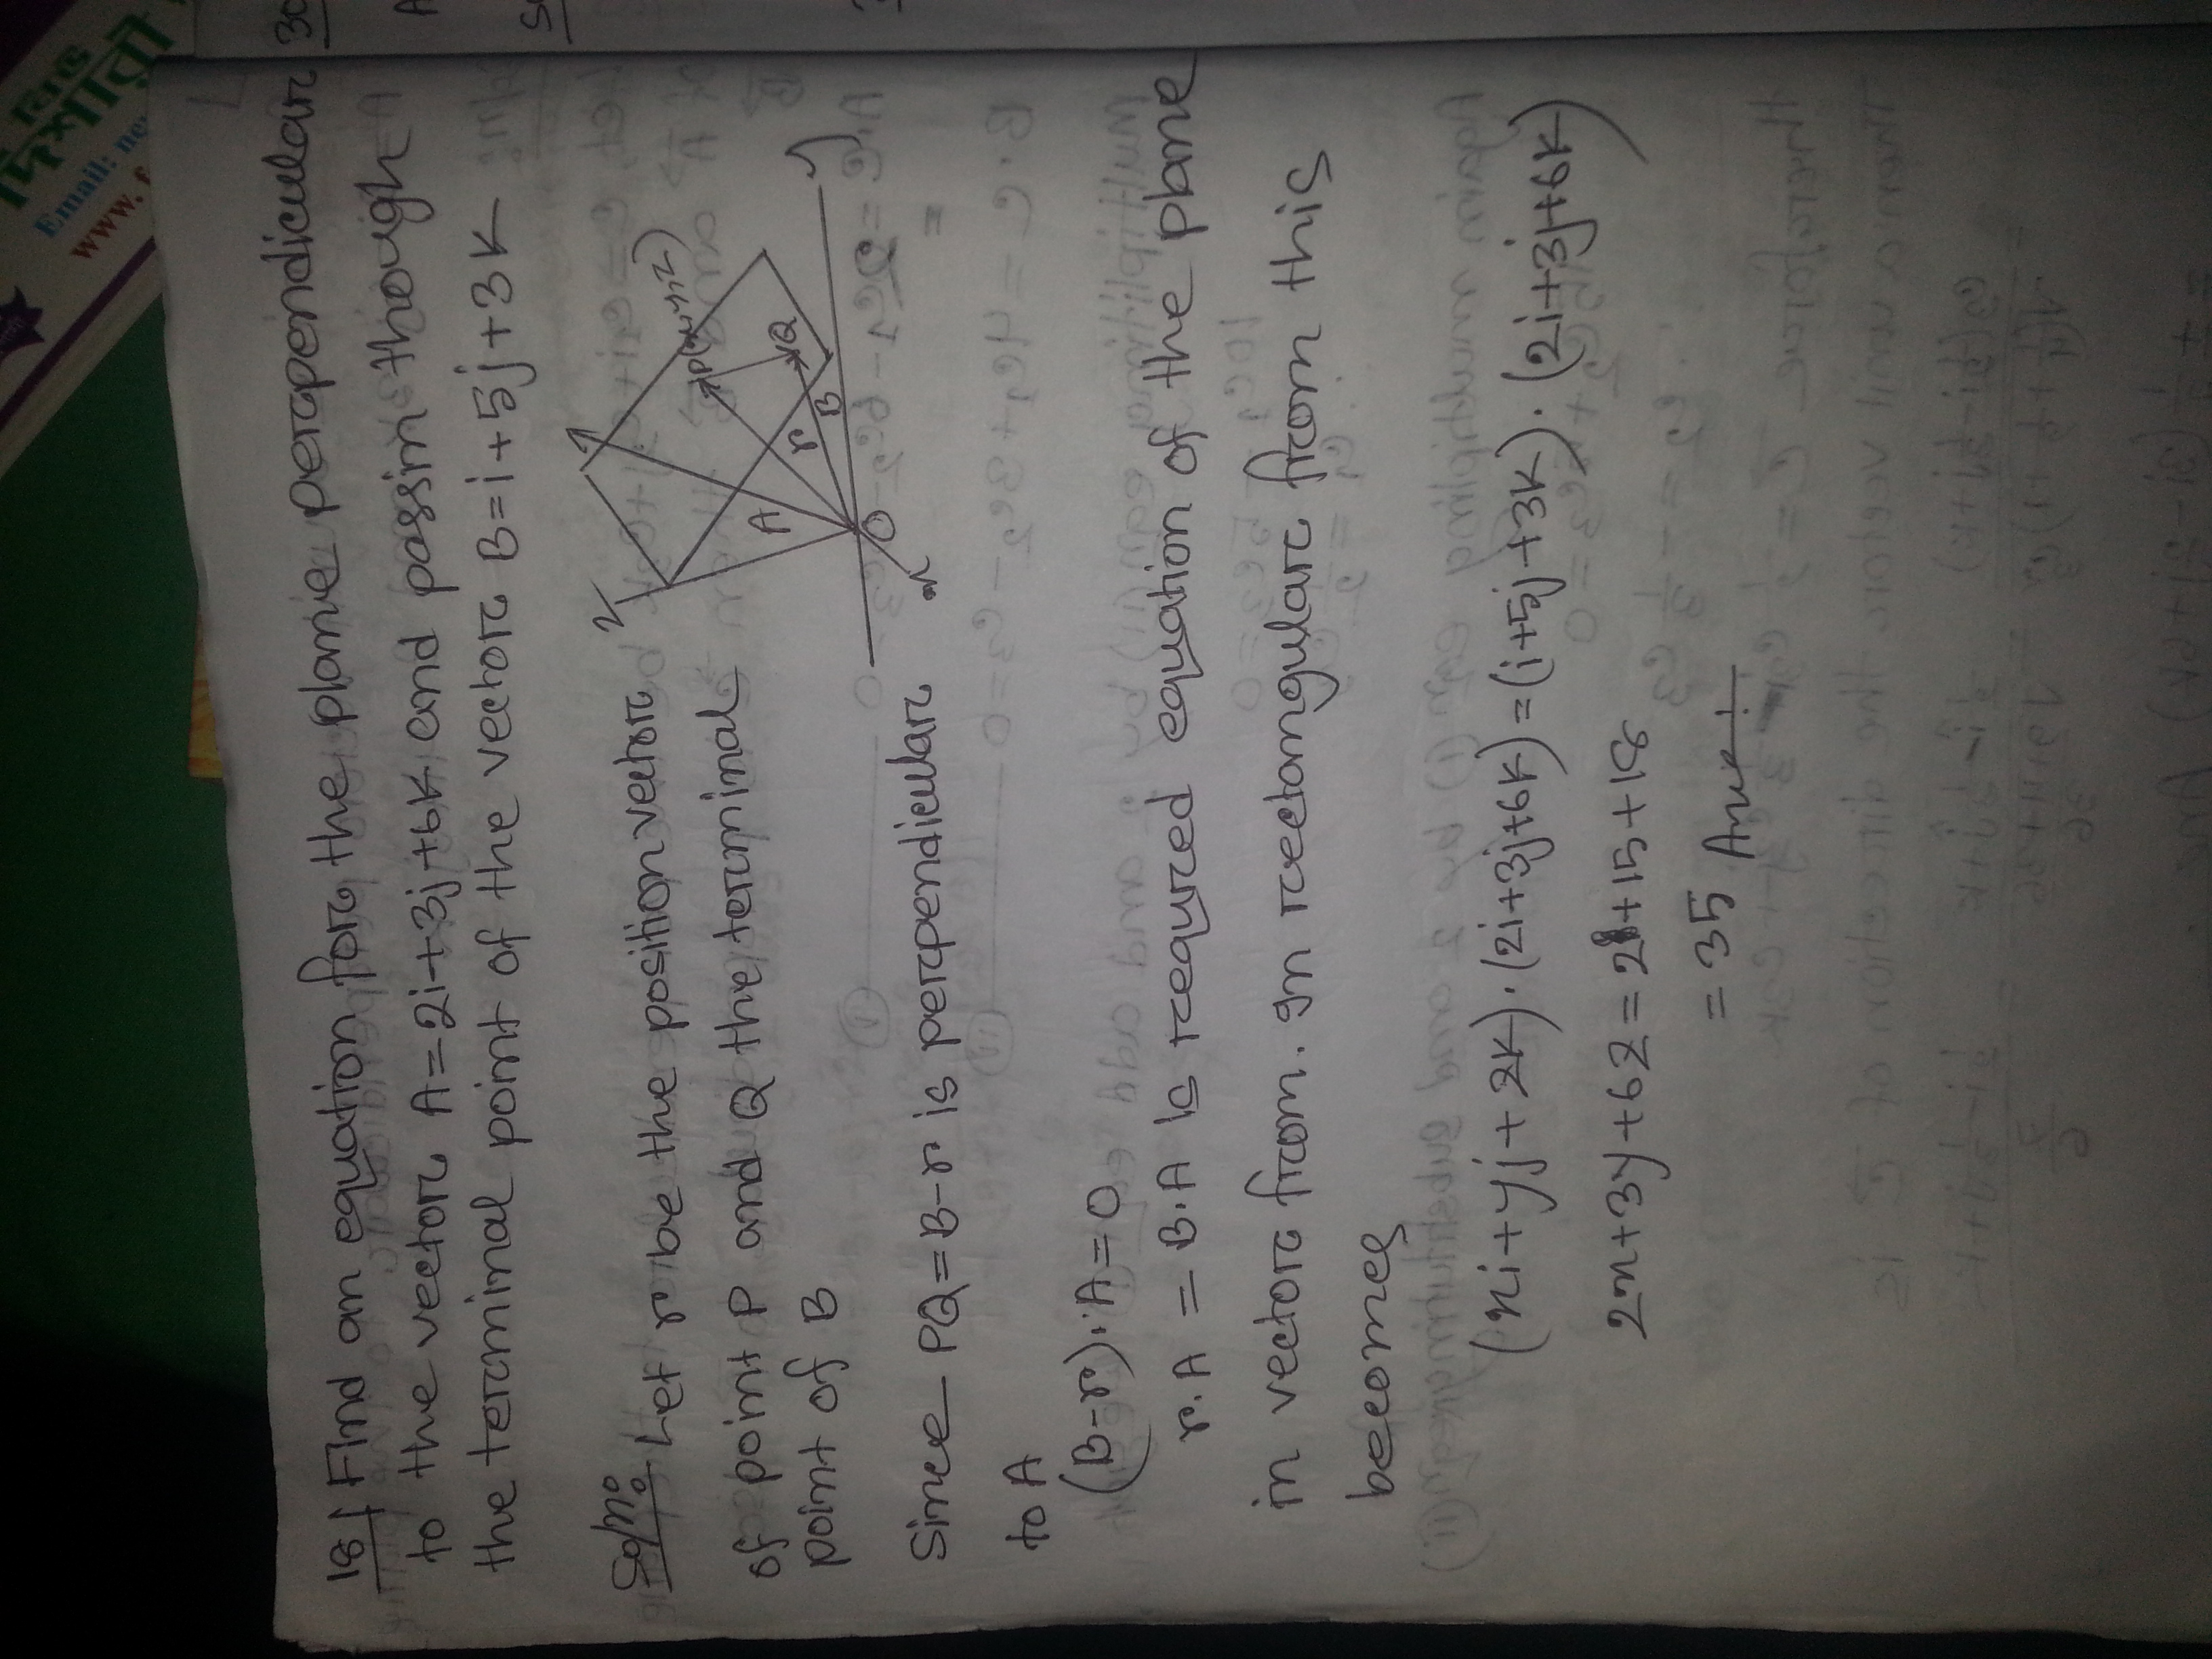 দিশারী
Email: ne
www. f
18/ Find an equation for the plane perpendicular
to the vector A=2i+3j+6k and passin though
the terminal point of the vector B=i+5j+3k
Soln:
Let r be the position vector
of point P and Q the terminal
point of B
Z
P(x,y,z)
A
r
Q
B
y
O
x
Since PQ=B-r is perpendicular
to A
(B-r).A=0
r.A = B.A is requred equation of the plane
in vector from. In rectangular from this
becomes
(xi+yj+zk).(2i+3j+6k)=(i+5j+3k).(2i+3j+6k)
2x+3y+6z=2+15+18
=35 Ans:
30